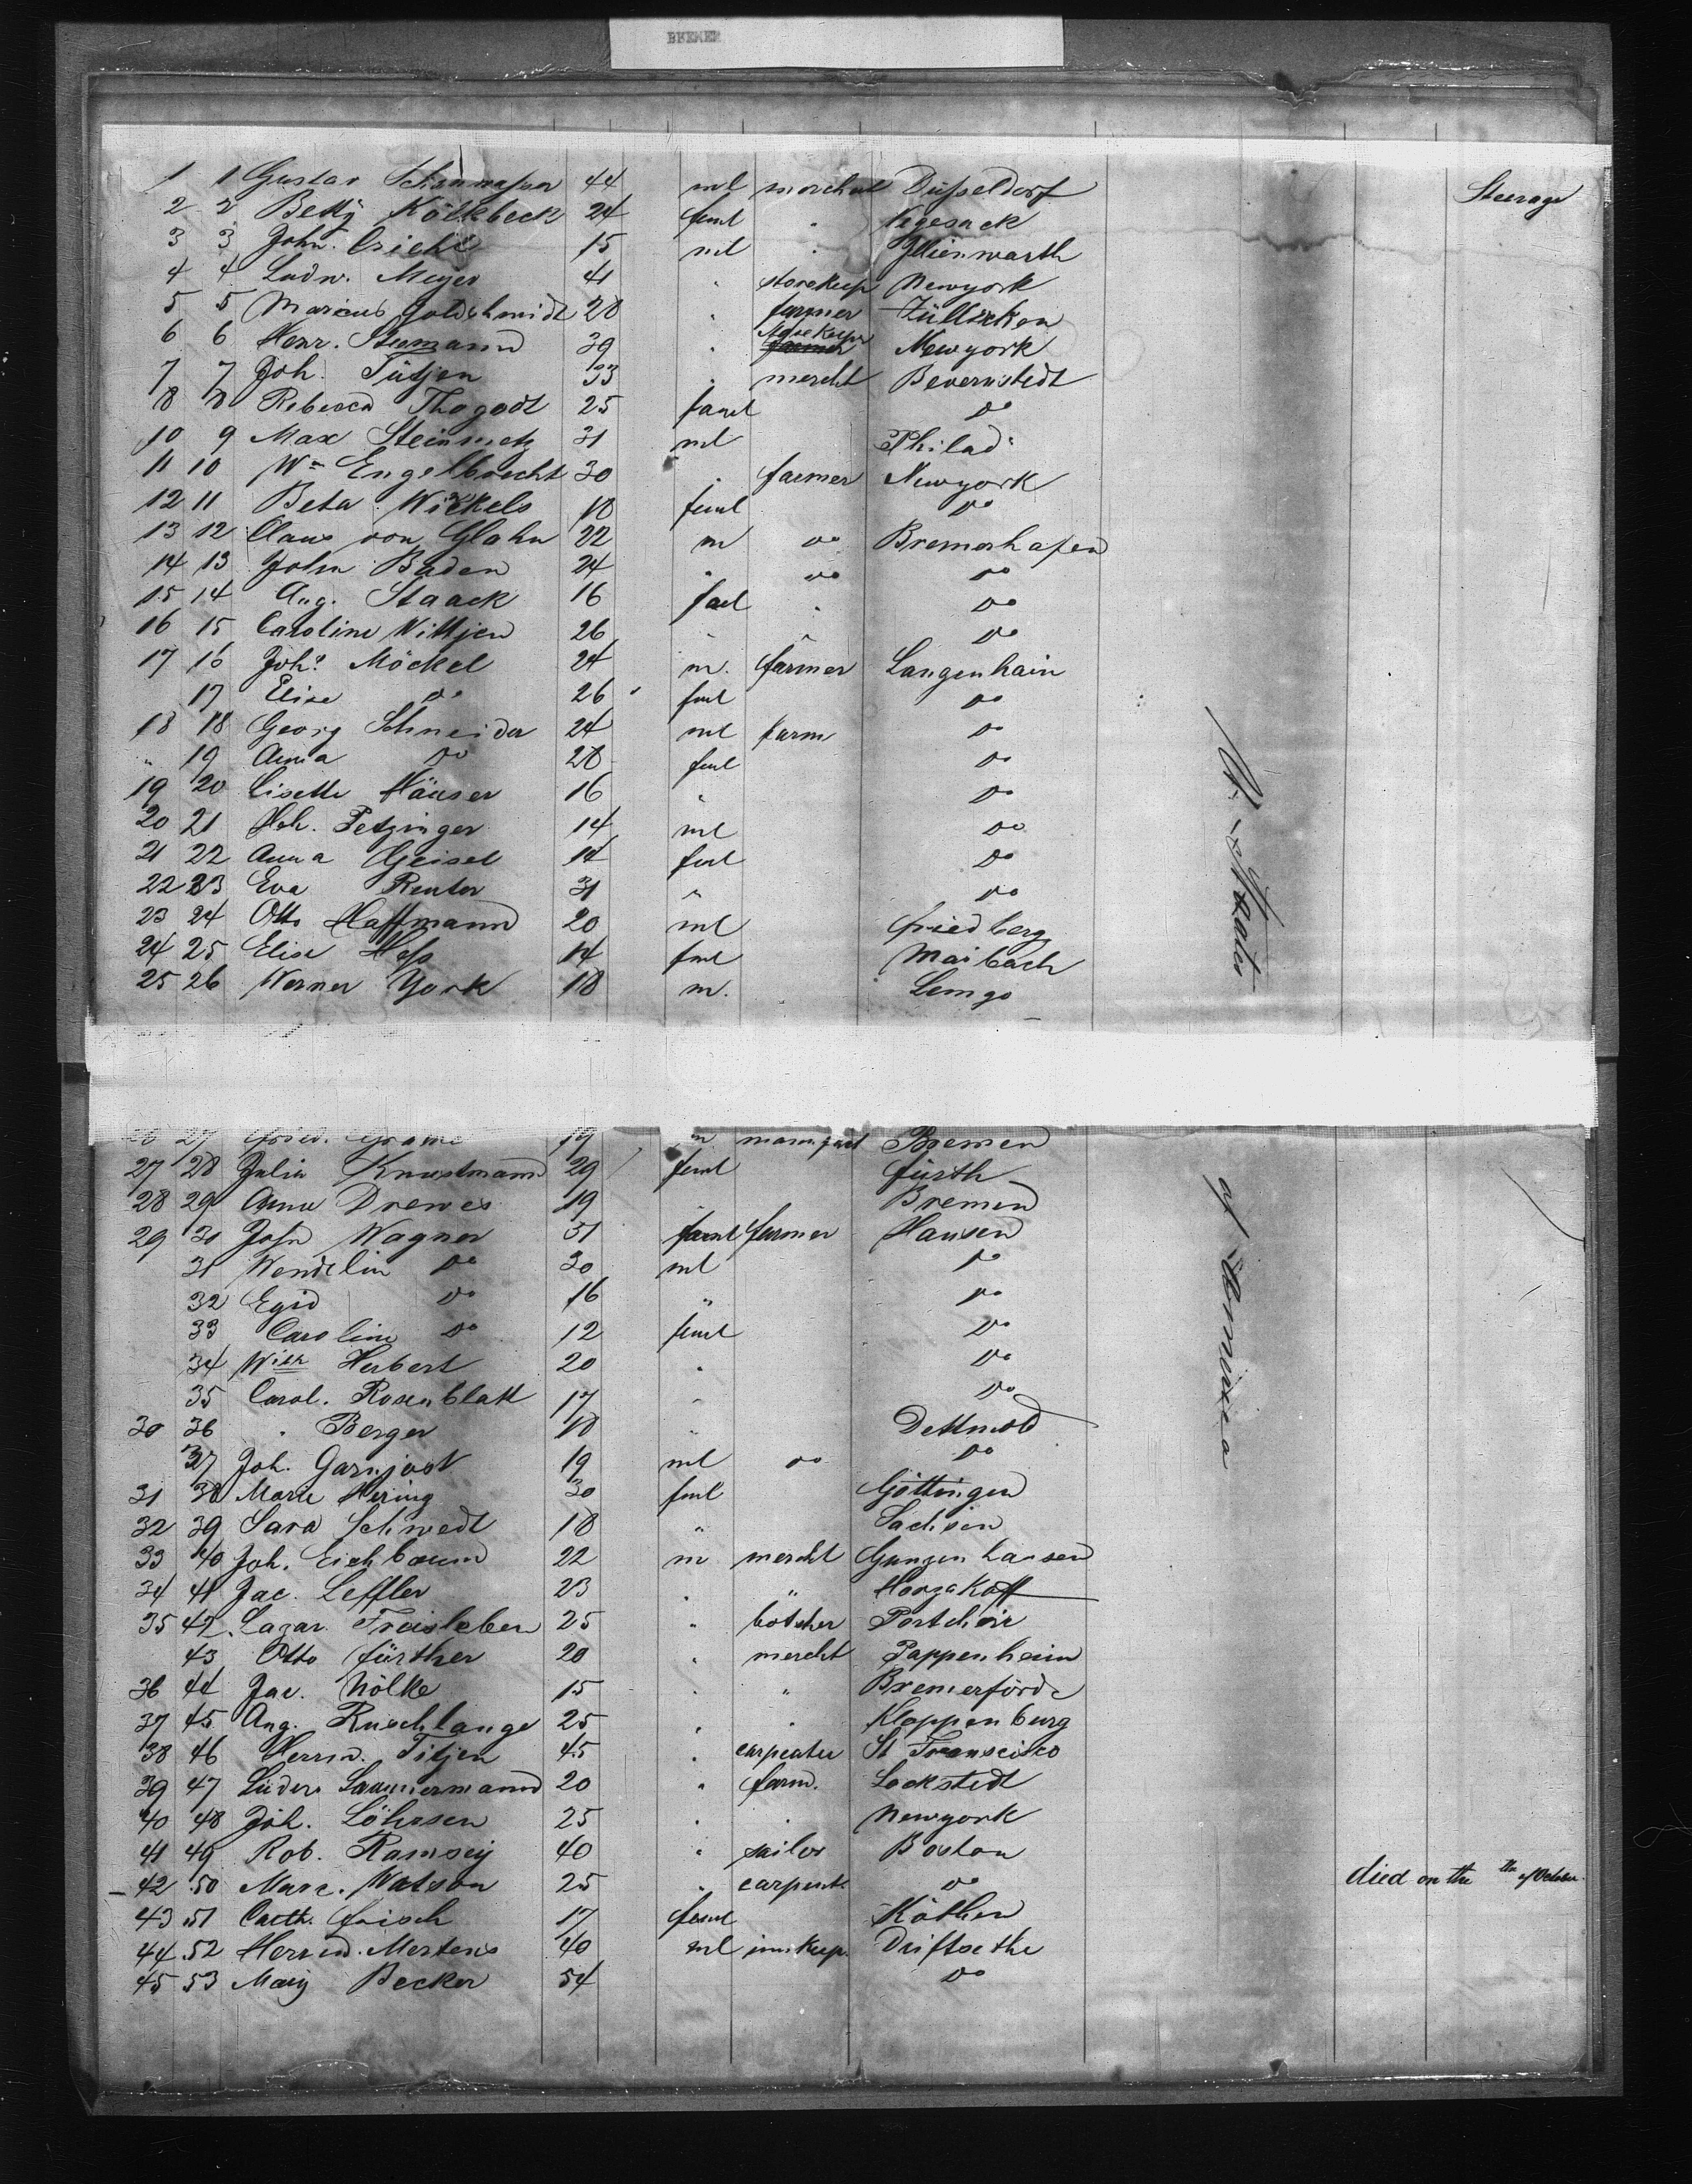 BREMEN
1 1 Gustav 44 ml merchant Düsseldorf Steerage
2 2 Betty Kölkbeck 24 feml " Vegesack
3 3 John. 15 ml "
4 4 Ludw. Meyer 41 " storekeep Newyork
5 5 Marcus Goldschmidt 28 " farmer Züllichen
6 6 Henr. Stegmann 39 " Newyork
7 7 Joh. Tütjen 33 " mercht Beverstedt
8 8 Rebecca 25 faml do
10 9 Max Steinmetz 31 ml Philad
11 10 Wm Engelbrecht 30 " farmer Newyork
12 11 Beta Winkels 18 feml do
13 12 Claus von Glahn 22 m do Bremerhafen
14 13 John Baden 24 " do do
15 14 Aug. Staack 16 fael " do
16 15 Caroline Wittjen 26 " " do
17 16 Johs Möckel 24 m. farmer Langenhain
17 Elise do 26 fml do
18 18 Georg Schneider 24 ml farm do
" 19 Anna do 28 feml do
19 20 Lisette Häuser 16 " do
20 21 Joh. Petzinger 14 ml do
21 22 Anna Geisel 14 feml do
22 23 Eva Reuter 31 " do
23 24 Otto Haffmann 20 ml Friedberg
24 25 Elise Hess 14 fml Maibach
25 26 Werner York 18 m. Lemgo
U. States
26 27 Fried. 19 m Bremen
27 28 Julia Knustmann 29 feml Fürth
28 29 Anna Drewes 19 " Bremen
29 30 John Wagner 31 faml farmer Hausen
31 Wendelin do 30 ml do
32 Egid do 16 " do
33 Caroline do 12 feml do
34 Wilh Herbert 20 " do
35 Carol. Rosenblatt 17 " do
30 36 " Berger 18 " Dettmold
37 Joh. Garnjost 19 ml do do
31 38 Marie Hering 30 fml Göttingen
32 39 Sara Schwedt 18 " Sachsen
33 40 Joh. Eichbaum 22 m mercht Gunzenhausen
34 41 Jac. Leffler 23 " "
35 42 Lazar. Freisleben 25 " botcher
43 Otto Fürther 20 " mercht Pappenheim
36 44 Jac. Nölke 15 " " Bremerförde
37 45 Aug. Ruschlange 25 " " Kloppenburg
38 46 Herrm. Titjen 45 " carpenter St Franscisco
39 47 Lüder Lammermann 20 " farm. Lockstedt
40 48 Joh. Löhrsen 25 " " Newyork
41 49 Rob. Ramsey 40 " sailor Boston
42 50 Marc. Watson 25 " carpent. do died on the th of October.
43 51 Cath. Frisch 17 feml Köthen
44 52 Herrm. Mertens 40 ml innkeep. Driftsethe
45 53 Mary Becker 54 do
of America